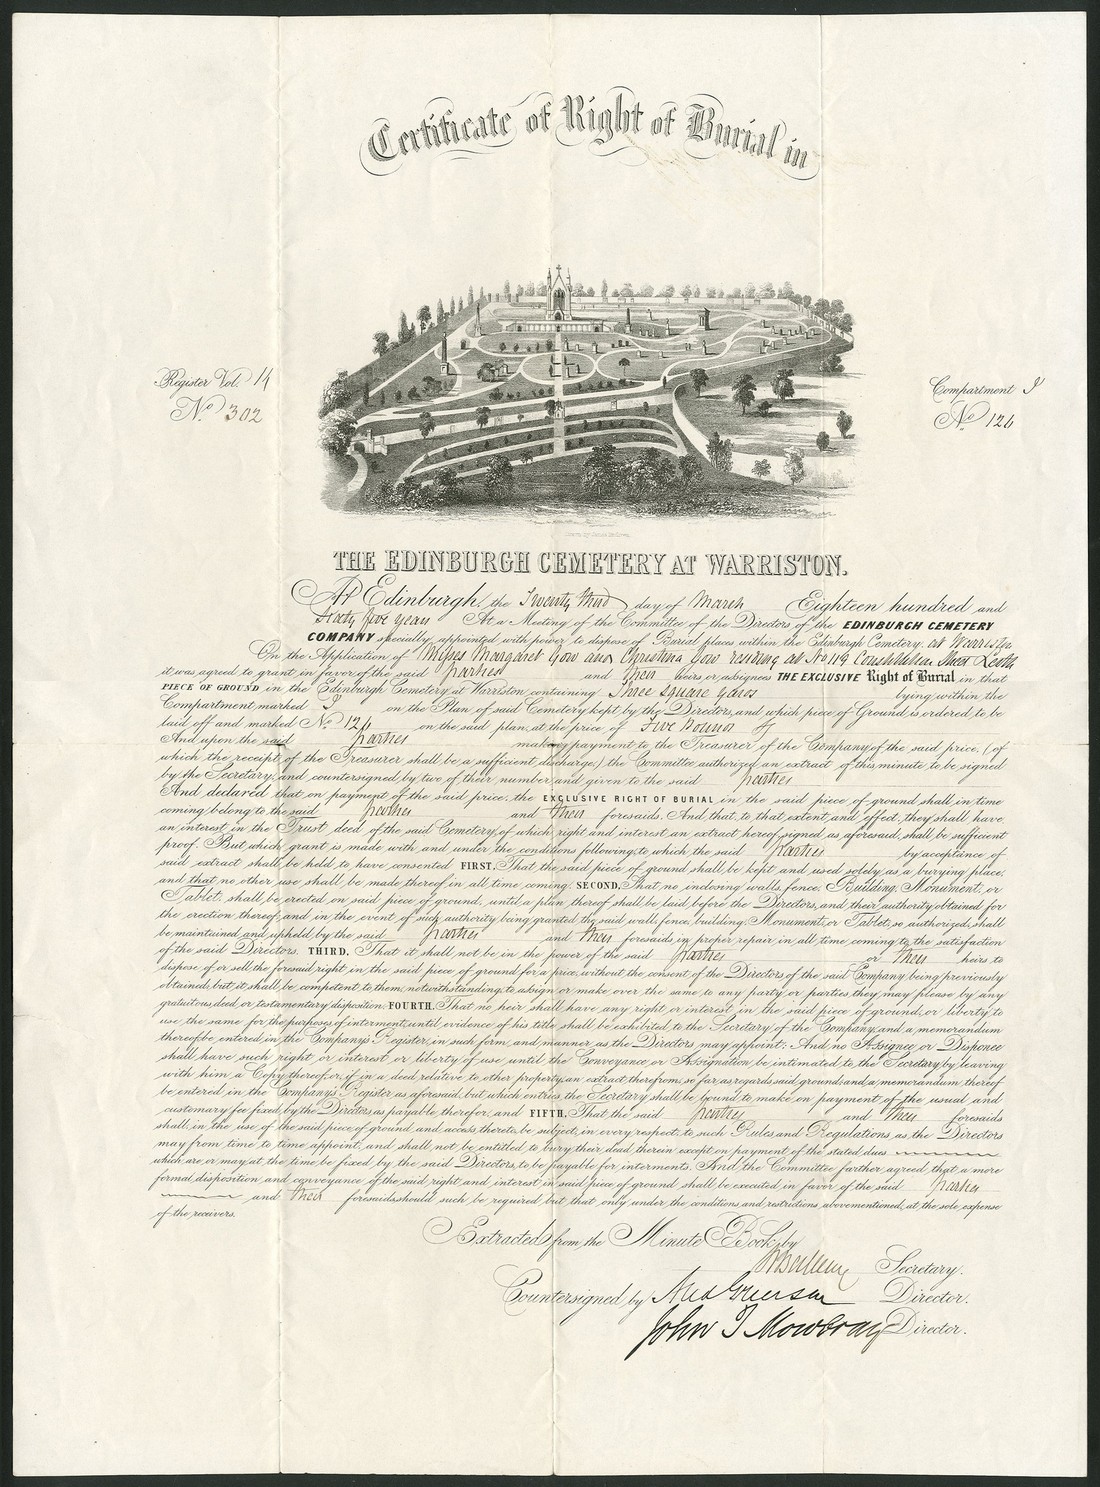 Certificate of Right of Burial in
Register Vol. 14
No. 302
Compartment I
No. 126
THE EDINBURGH CEMETERY AT WARRISTON.
At Edinburgh, the Twenty third day of March Eighteen hundred and
Sixty five years At a Meeting of the Committee of the Directors of the EDINBURGH CEMETERY
COMPANY specially appointed with power to dispose of Burial places within the Edinburgh Cemetery at Warriston
On the Application of Misses Margaret Gow and Christina Gow residing at No 119 Constitution Street Leith
it was agreed to grant in favor of the said parties and their heirs or assignees THE EXCLUSIVE Right of Burial in that
PIECE OF GROUND in the Edinburgh Cemetery at Warriston containing Three square yards lying within the
Compartment marked I on the Plan of said Cemetery kept by the Directors, and which piece of Ground is ordered to be
laid off and marked No. 126 on the said plan, at the price of Five Pounds
And upon the said parties making payment to the Treasurer of the Company of the said price, (of
which the receipt of the Treasurer shall be a sufficient discharge,) the Committee authorized an extract of this minute to be signed
by the Secretary, and countersigned by two of their number, and given to the said parties
And declared that on payment of the said price, the EXCLUSIVE RIGHT OF BURIAL in the said piece of ground shall in time
coming belong to the said parties and their foresaids. And that, to that extent, and effect, they shall have
an interest in the Trust deed of the said Cemetery, of which right and interest an extract hereof, signed as aforesaid, shall be sufficient
proof. But which grant is made with and under the conditions following, to which the said parties by acceptance of
said extract shall be held to have consented FIRST. That the said piece of ground shall be kept and used solely as a burying place,
and that no other use shall be made thereof in all time coming. SECOND. That no inclosing walls, fence, Building, Monument, or
Tablet, shall be erected on said piece of ground, until a plan thereof shall be laid before the Directors, and their authority obtained for
the erection thereof, and in the event of such authority being granted, the said wall, fence, building, Monument, or Tablet, so authorized, shall
be maintained and upheld by the said parties and their foresaids in proper repair in all time coming to the satisfaction
of the said Directors. THIRD. That it shall not be in the power of the said parties or their heirs to
dispose of or sell the foresaid right in the said piece of ground for a price, without the consent of the Directors of the said Company being previously
obtained, but it shall be competent to them, notwithstanding, to assign or make over the same to any party or parties, they may please by any
gratuitous deed, or testamentary disposition. FOURTH. That no heir shall have any right or interest in the said piece of ground, or liberty to
use the same for the purposes of interment, until evidence of his title shall be exhibited to the Secretary of the Company, and a memorandum
thereof be entered in the Company's Register, in such form, and manner, as the Directors may appoint: And no Assignee or Disponee
shall have such right or interest or liberty of use until the Conveyance or Assignation be intimated to the Secretary by leaving
with him a Copy thereof, or, if in a deed relative to other property, an extract therefrom, so far as regards said ground, and a memorandum thereof
be entered in the Company's Register as aforesaid, but which entries, the Secretary shall be bound to make on payment of the usual and
customary fee fixed by the Directors, as payable therefor, and FIFTH. That the said parties and their foresaids
shall, in the use of the said piece of ground and access thereto, be subject, in every respect, to such Rules, and Regulations, as the Directors
may from time to time appoint, and shall not be entitled to bury their dead therein except on payment of the stated dues
which are or may at the time be fixed by the said Directors, to be payable for interments. And the Committee farther agreed that a more
formal disposition and conveyance of the said right and interest in said piece of ground shall be executed in favor of the said parties
and their foresaids, should such be required, but that only under the conditions, and restrictions, abovementioned, at the sole expense
of the receivers.
Extracted from the Minute Book, by
Secretary.
Countersigned by And Grierson Director.
John T Mowbray Director.